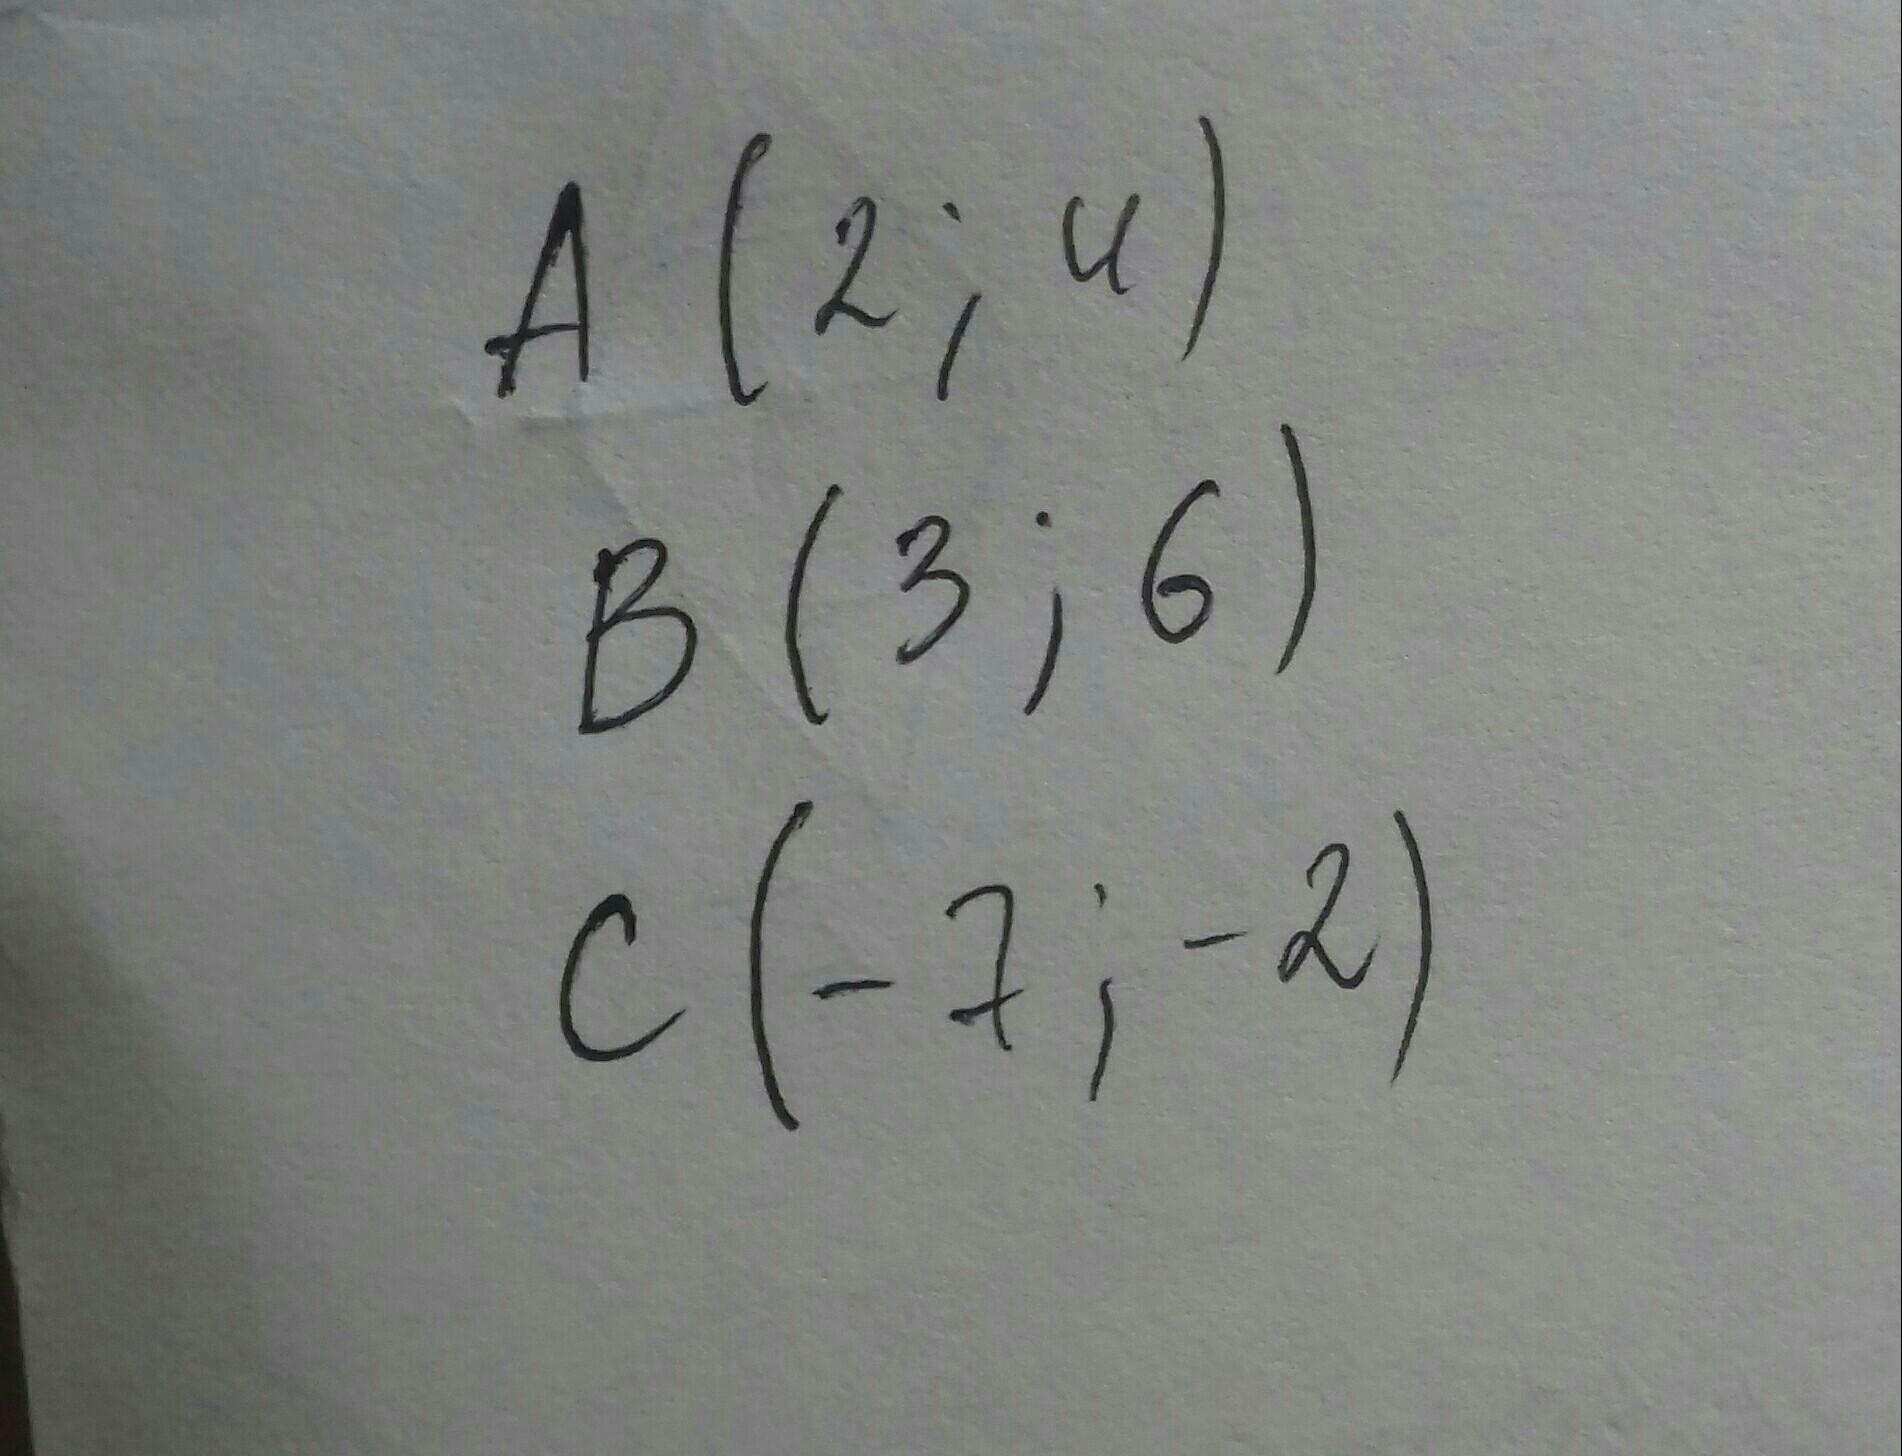 A (2; 4)
B (3; 6)
C (-7; -2)